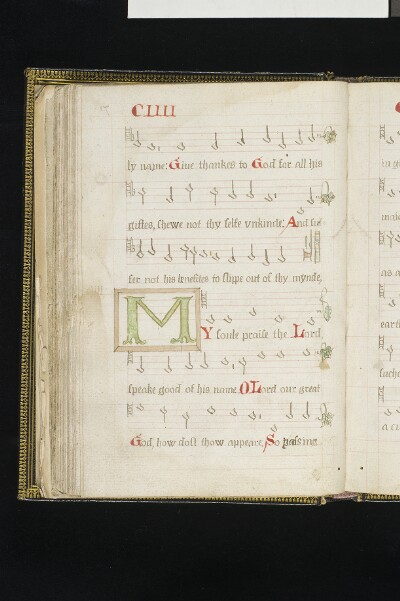 CIIII
ly name: Giue thankes to God for all his
giftes, shewe not thy selfe vnkinde, And suf
fer not his benefites to slippe out of thy mynde,
MY soule praise the Lord
speake good of his name, O Lord our great
God, how dost thow appeare, So passing